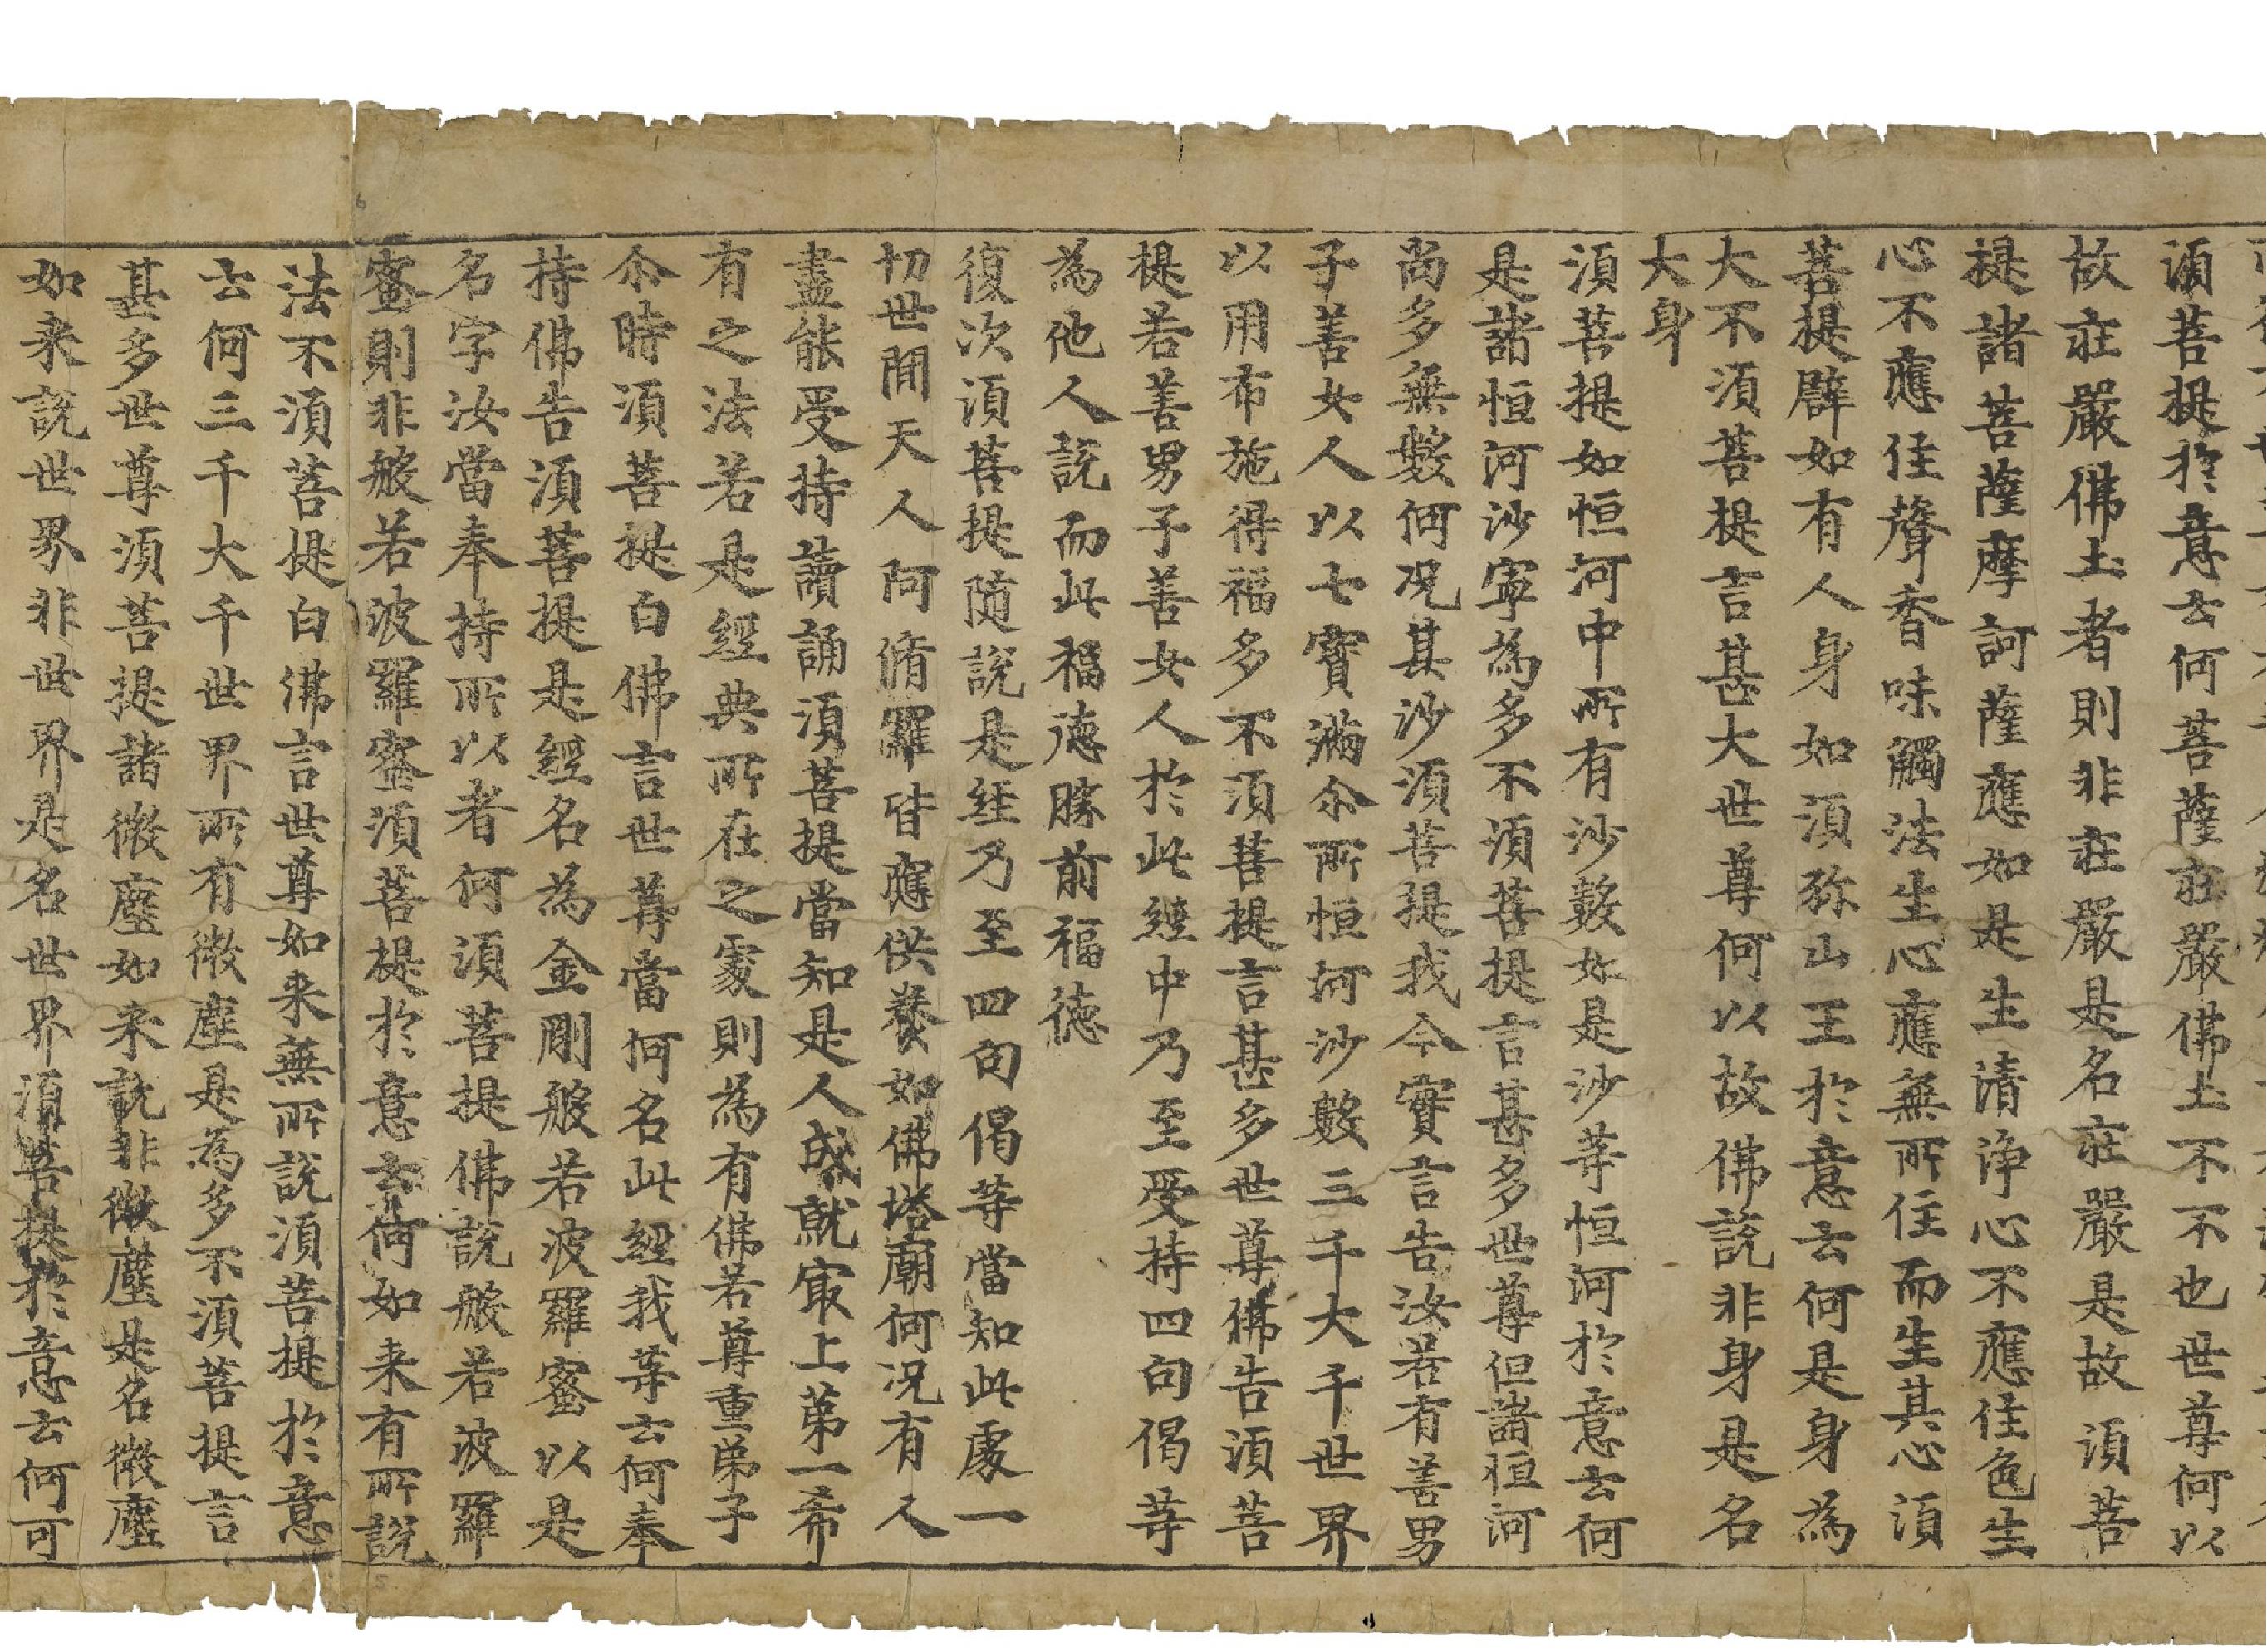 須菩提於意云何菩薩莊嚴佛土不不也世尊何以
故莊嚴佛土者則非莊嚴是名莊嚴是故須菩
提諸菩薩摩訶薩應如是生清淨心不應住色生
心不應住聲香味觸法生心應無所住而生其心須
菩提辟如有人身如須弥山王於意云何是身為
大不須菩提言甚大世尊何以故佛說非身是名
大身
須菩提如恒河中所有沙數如是沙等恒河於意云何
是諸恒河沙寧為多不須菩提言甚多世尊但諸恒河
尚多無數何况其沙須菩提我今實言告汝若有善男
子善女人以七寶滿尒所恒河沙數三千大千世界
以用布施得福多不須菩提言甚多世尊佛告須菩
提若善男子善女人於此經中乃至受持四句偈等
為他人說而此福德勝前福德
復次須菩提隨說是經乃至四句偈等當知此處一
切世間天人阿脩羅皆應供養如佛塔廟何况有人
盡能受持讀誦須菩提當知是人成就㝡上苐一希
有之法若是經典所在之處則為有佛若尊重弟子
尒時須菩提白佛言世尊當何名此經我等云何奉
持佛告須菩提是經名為金剛般若波羅蜜以是
名字汝當奉持所以者何須菩提佛說般若波羅
蜜則非般若波羅蜜須菩提於意云何如来有所說
法不須菩提白佛言世尊如来無所說須菩提於意
云何三千大千世界所有微塵是為多不須菩提言
甚多世尊須菩提諸微塵如来說非微塵是名微塵
如来說世界非世界是名世界須菩提於意云何可